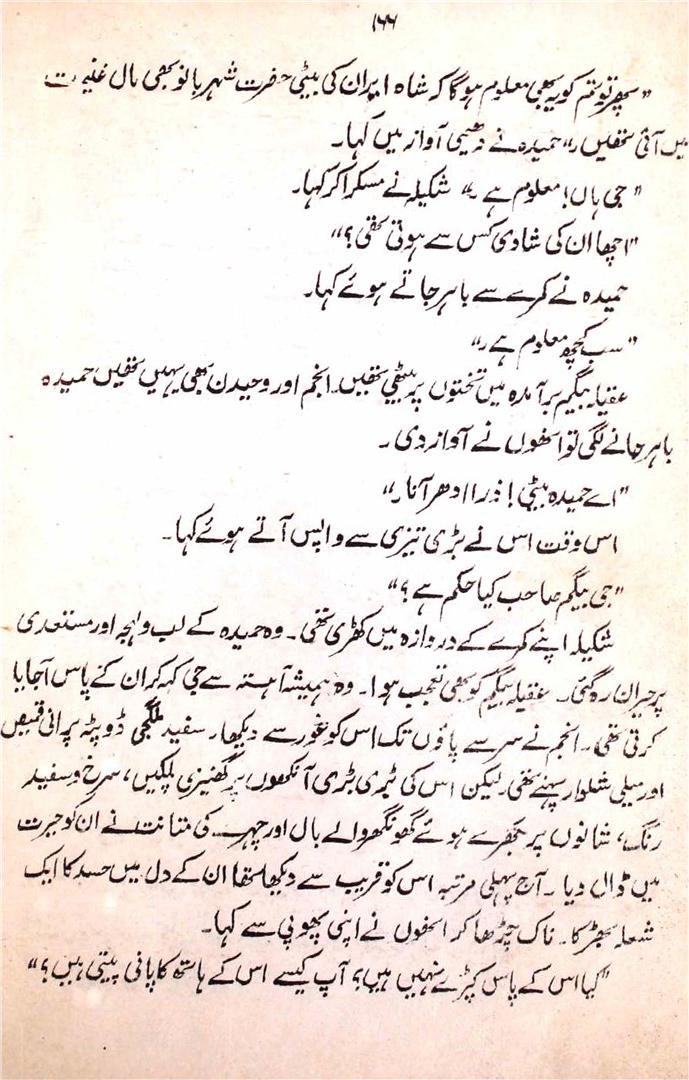 ۱۶۶
"پھر تو تم کو یہ بھی معلوم ہوگا کہ شاہ ایران کی بیٹی حضرت شہر بانو بھی مال غنیمت
میں آئی تھیں۔" حمیدہ نے دھیمی آواز میں کہا۔
"جی ہاں! معلوم ہے۔" شکیلہ نے مسکرا کر کہا۔
"اچھا ان کی شادی کس سے ہوئی تھی؟"
حمیدہ نے کمرے سے باہر جاتے ہوئے کہا۔
"سب کچھ معلوم ہے۔"
عقیلہ بیگم برآمدہ میں تختوں پر بیٹھی تھیں۔ انجم اور وحیدن بھی یہیں تھیں حمیدہ
باہر جانے لگی تو انھوں نے آواز دی۔
"اے حمیدہ بیٹی! ذرا ادھر آنا۔"
اس وقت اس نے بڑی تیزی سے واپس آتے ہوئے کہا۔
"جی بیگم صاحب کیا حکم ہے؟"
شکیلہ اپنے کمرے کے دروازہ میں کھڑی تھی۔ وہ حمیدہ کے لب و لہجہ اور مستعدی
پر حیران رہ گئی۔ عقیلہ بیگم کو بھی تعجب ہوا۔ وہ ہمیشہ آہستہ سے جی کہہ کر ان کے پاس آ جایا
کرتی تھی۔ انجم نے سر سے پاؤں تک اس کو غور سے دیکھا۔ سفید ملگجی ڈوپٹہ پرانی قمیض
اور میلی شلوار پہنے تھی لیکن اس کی بڑی بڑی آنکھوں پر گھنیری پلکیں، سرخ و سفید
رنگ، شانوں پر بکھرے ہوئے گھونگھر والے بال اور چہرے کی متانت نے ان کو حیرت
میں ڈال دیا۔ آج پہلی مرتبہ اس کو قریب سے دیکھا تھا ان کے دل میں حسد کا ایک
شعلہ بھڑکا۔ ناک چڑھا کر انھوں نے اپنی پھوپی سے کہا۔
"کیا اس کے پاس کپڑے نہیں ہیں؟ آپ کیسے اس کے ہاتھ کا پانی پیتی ہیں؟"